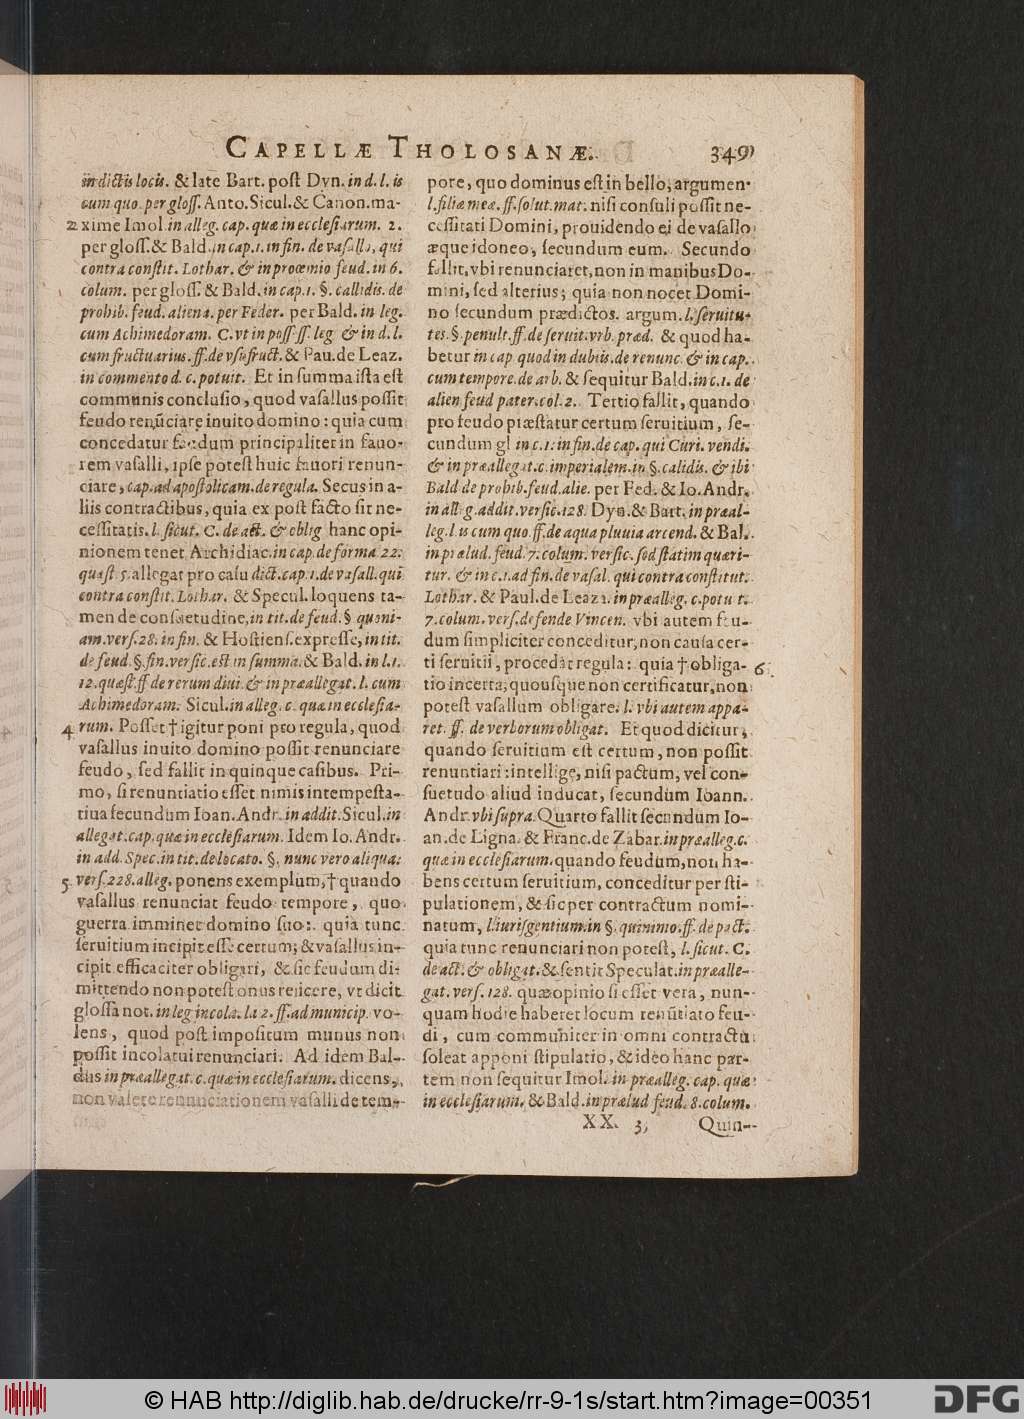 CAPELLÆ THOLOSANÆ. 349
in dictis locis. & late Bart. post Dyn. in d. l. is
cum quo. per gloss. Anto. Sicul. & Canon. ma-
2 xime Imol. in alleg. cap. quæ in ecclesiarum. 2.
per gloss. & Bald. in cap. 1. in fin. de vasallo, qui
contra constit. Lothar. & in proœmio feud. in 6.
colum. per gloss. & Bald. in cap. 1. §. callidis. de
prohib. feud. aliena. per Feder. per Bald. in leg.
cum Achimedoram. C. vt in poss. ff. leg & in d. l.
cum fructuarius. ff. de vsufruct. & Pau. de Leaz.
in commento d. c. potuit. Et in summa ista est
communis conclusio, quod vasallus possit
feudo renũciare inuito domino: quia cum
concedatur feudum principaliter in fauo-
rem vasalli, ipse potest huic fauori renun-
ciare, cap. ad apostolicam. de regula. Secus in a-
liis contractibus, quia ex post facto fit ne-
cessitatis. l. sicut. C. de act. & oblig hanc opi-
nionem tenet Archidiac. in cap. de forma 22.
quæst 5. allegat pro casu dict. cap. 1. de vasall. qui
contra constit. Lothar. & Specul. loquens ta-
men de consuetudine, in tit. de feud. § quoni-
am. vers. 28. in fin. & Hostiens. expresse, in tit.
de feud. §. fin. versic. est in summa. & Bald. in l. 1.
12. quæst. ff de rerum diui. & in præallegat. l. cum
Achimedoram. Sicul. in alleg. c. quæ in ecclesia-
4 rum. Posset † igitur poni pro regula, quod
vasallus inuito domino possit renunciare
feudo, sed fallit in quinque casibus. Pri-
mo, si renuntiatio esset nimis intempesta-
tiua secundum Ioan. Andr. in addit. Sicul. in
allegat. cap. quæ in ecclesiarum. Idem Io. Andr.
in add. Spec. in tit. de locato. §. nunc vero aliqua:
5. vers. 228. alleg. ponens exemplum, † quando
vasallus renunciat feudo tempore, quo
guerra imminet domino suo: quia tunc
seruitium incipit esse certum; & vasallus in-
cipit efficaciter obligari, & sic feudum di-
mittendo non potest onus reiicere, vt dicit
glossa not. in leg incola. la 2. ff. ad municip. vo-
lens, quod post impositum munus non
possit incolatui renunciari. Ad idem Bal-
dus in præallegat. c. quæ in ecclesiarum. dicens,
non valere renunciationem vasalli de tem-
pore, quo dominus est in bello, argumen.
l. filiæ meæ. ff. solut. mat. nisi consuli possit ne-
cessitati Domini, prouidendo ei de vasallo
æque idoneo, secundum eum. Secundo
fallit, vbi renunciaret, non in manibus Do-
mini, sed alterius; quia non nocet Domi-
no secundum prædictos. argum. l. seruitu-
tes. §. penult. ff. de seruit. vrb. præd. & quod ha-
betur in cap quod in dubiis. de renunc. & in cap.
cum tempore. de arb. & sequitur Bald. in c. 1. de
alien feud pater. col. 2. Tertio fallit, quando
pro feudo præstatur certum seruitium, se-
cundum gl in c. 1. in fin. de cap. qui Curi. vendi.
& in præallegat. c. imperialem. in §. calidis. & ibi
Bald de prohib. feud. alie. per Fed. & Io. Andr.
in alleg. addit. versic. 128. Dyn. & Bart. in præal-
leg. l. is cum quo. ff. de aqua pluuia arcend. & Bal.
in prælud. feud. 7. colum. versic. sed statim quæri-
tur. & in c. 1. ad fin. de vasal. qui contra constitut.
Lothar. & Paul. de Leaza. in præalleg. c. potu t.
7. colum. vers. defende Vincen. vbi autem feu-
dum simpliciter conceditur, non causa cer-
ti seruitii, procedat regula: quia † obliga- 6
tio incerta, quousque non certificatur, non
potest vasallum obligare. l. vbi autem appa-
ret. ff. de verborum obligat. Et quod dicitur,
quando seruitium est certum, non possit
renuntiari: intellige, nisi pactum, vel con-
suetudo aliud inducat, secundum Ioann.
Andr. vbi supra. Quarto fallit secundum Io-
an. de Ligna. & Franc. de Zabar. in præalleg. c.
quæ in ecclesiarum. quando feudum, non ha-
bens certum seruitium, conceditur per sti-
pulationem, & sic per contractum nomi-
natum, l. iurisgentium. in §. quinimo. ff. de pact.
quia tunc renunciari non potest, l. sicut. C.
de act. & obligat. & sentit Speculat. in præalle-
gat. vers. 128. quæ opinio si esset vera, nun-
quam hodie haberet locum renũtiato feu-
di, cum communiter in omni contractu
soleat apponi stipulatio, & ideo hanc par-
tem non sequitur Imol. in præalleg. cap. quæ
in ecclesiarum. & Bald. in prælud feud. 8. colum.
XX. 3 Quin-
© HAB http://diglib.hab.de/drucke/rr-9-1s/start.htm?image=00351
DFG